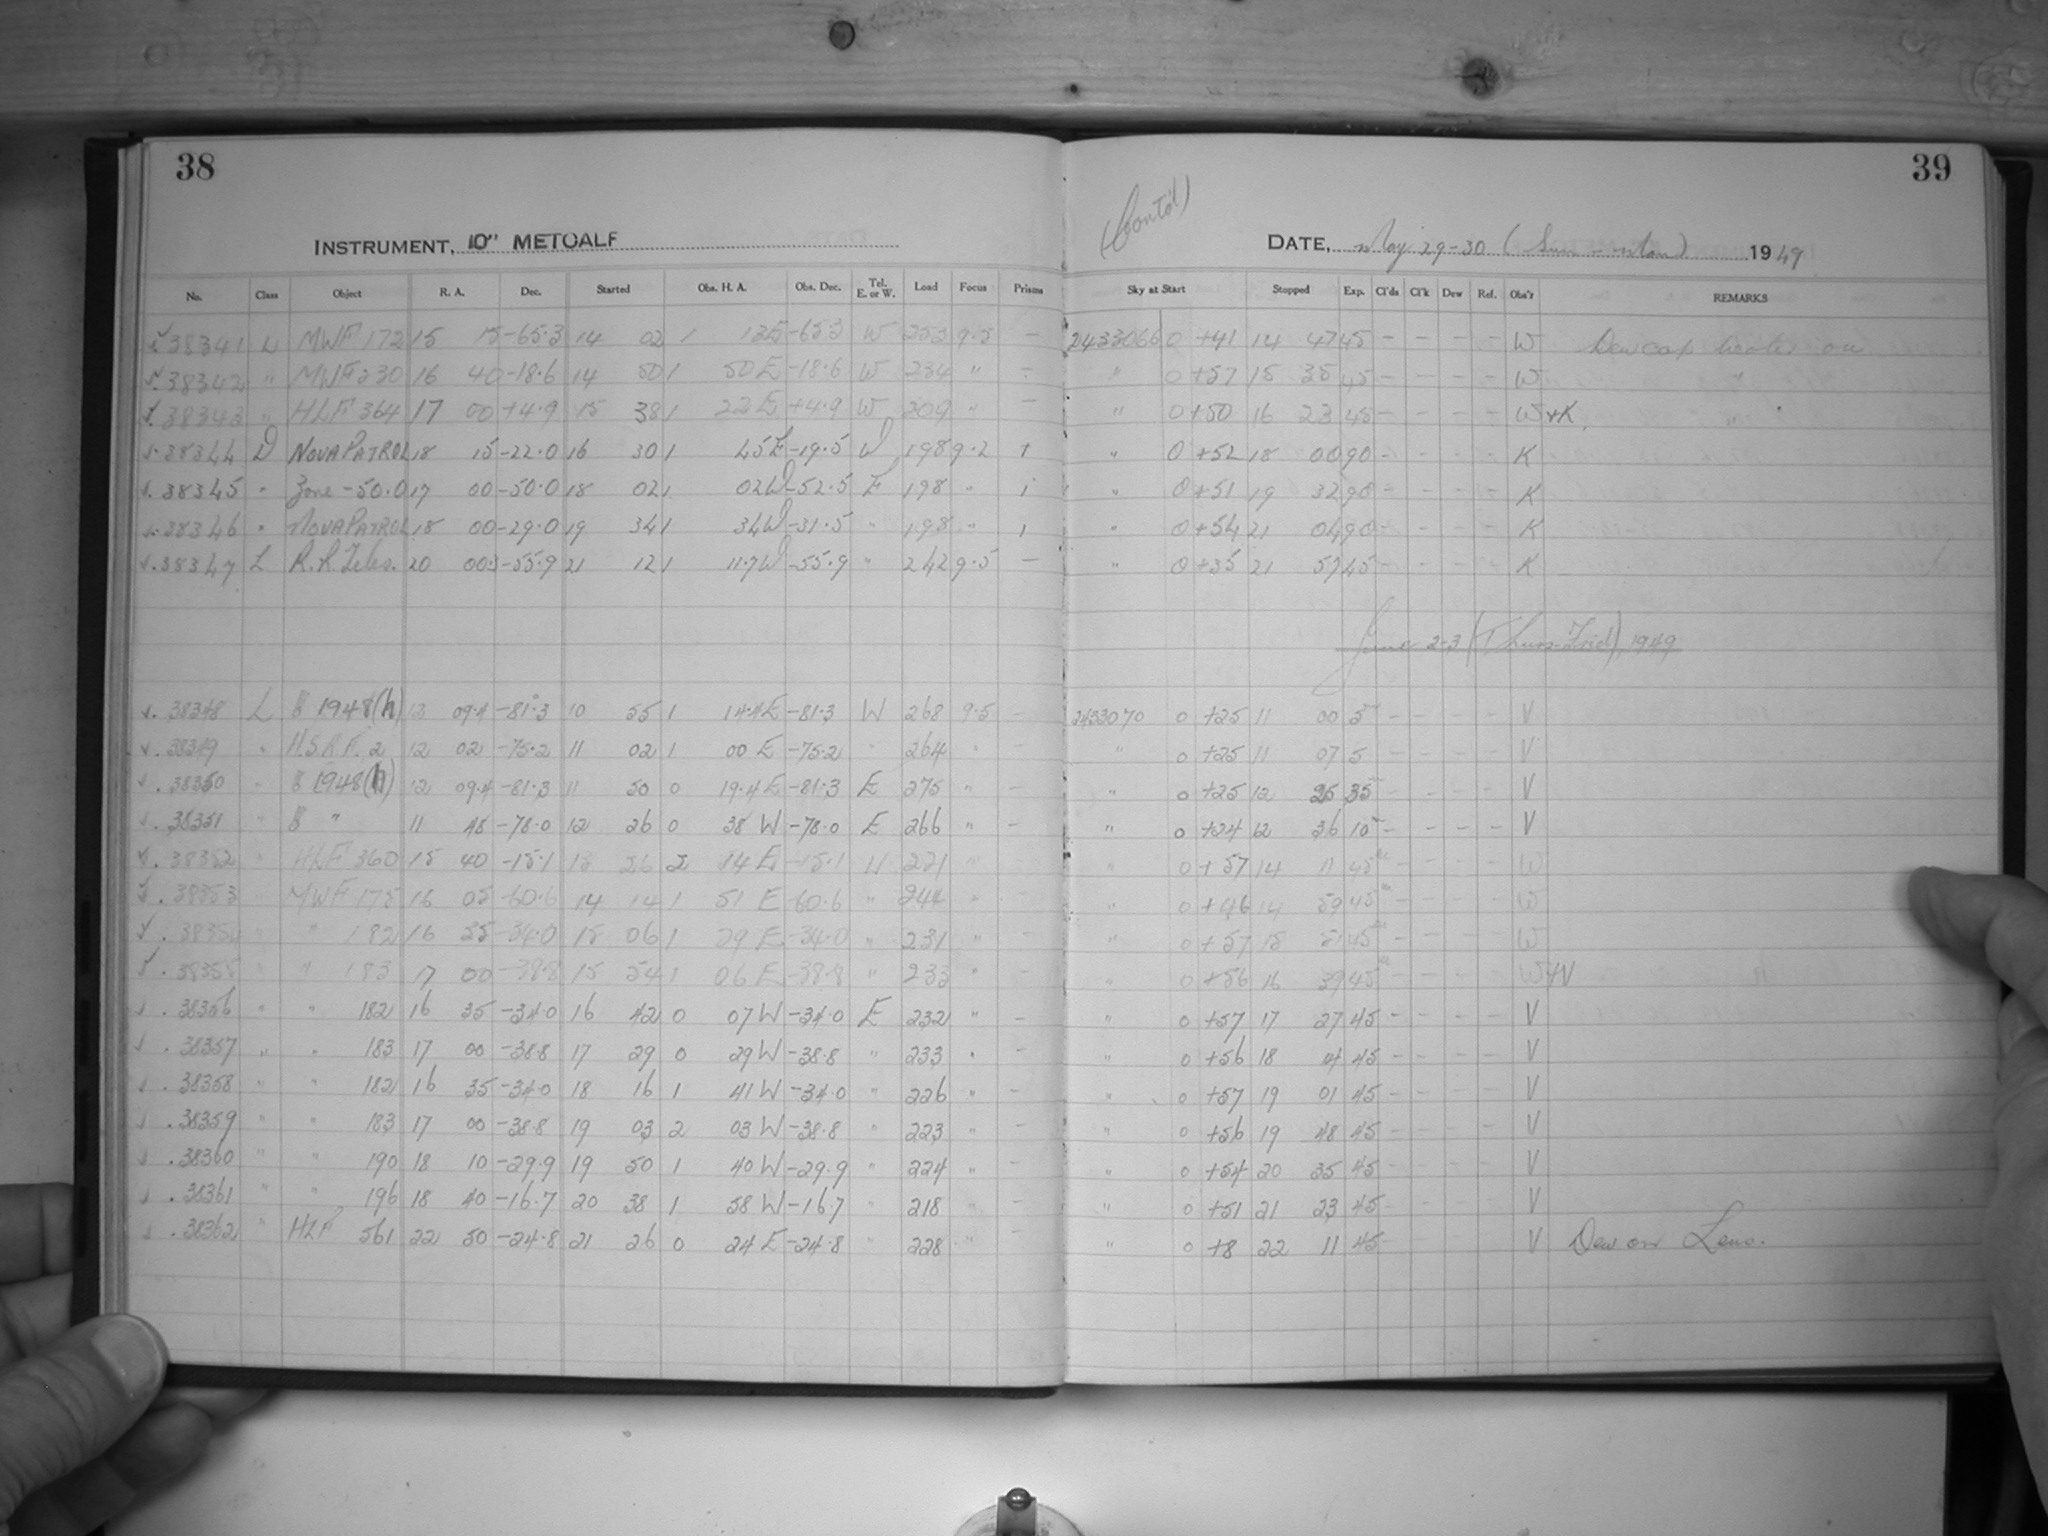 38
39
(Cont'd)
INSTRUMENT, 10" METCALF
DATE, May 29-30 (Sun - Mon) 1949
No. Class Object R. A. Dec. Started Obs. H. A. Obs. Dec. Tel. E. or W. Load Focus Prisms Sky at Start Stopped Exp. Cl'ds Cl'k Dew Ref. Obs'r REMARKS
38341 L MWF 172 15 15 -65.3 14 02 1 13E -65.3 W 253 9.5 - 2433066 0 +41 14 47 45 - - - - W Dewcap heater on
38342 " MWF 230 16 40 -18.6 14 50 1 50 E -18.6 W 234 " - " 0 +57 15 35 45 - - - - W "
38343 " HLF 364 17 00 +4.9 15 38 1 22 E +4.9 W 209 " - " 0 +50 16 23 45 - - - - W+K "
38344 D NOVA PATROL 18 15 -22.0 16 30 1 45 E -19.5 W 198 9.2 + " 0 +52 18 00 90 - - - - K
38345 " Zone -50.0 17 00 -50.0 18 02 1 02 W -52.5 E 198 " " 0 +51 19 32 90 - - - - K
38346 " NOVA PATROL 18 00 -29.0 19 34 1 34 W -31.5 " 198 " " 0 +54 21 04 90 - - - - K
38347 L R.R. Teles. 20 00.3 -55.9 21 12 1 11.7 W -55.9 " 242 9.5 - " 0 +35 21 57 45 - - - - K
June 2-3 (Thurs-Frid), 1949
38348 L 1948(h) 13 09.4 -81.3 10 55 1 14.4 E -81.3 W 268 9.5 - 2433070 0 +25 11 00 5 - - - - V
38349 " H.S.R.F. 2 12 02 -75.2 11 02 1 00 E -75.2 " 264 " - " 0 +25 11 07 5 - - - - V
38350 " 1948(h) 12 09.4 -81.3 11 50 0 19.4 E -81.3 E 275 " - " 0 +25 12 25 35 - - - - V
38351 " " 11 48 -78.0 12 26 0 38 W -78.0 E 266 " - " 0 +24 12 36 10 - - - - V
38352 " HLF 360 15 40 -15.1 13 26 2 14 E -15.1 W 221 " - " 0 +57 14 11 45 - - - - W
38353 " MWF 175 16 05 -60.6 14 14 1 51 E -60.6 " 244 " - " 0 +46 14 59 45 - - - - W
38354 " " 182 16 35 -34.0 15 06 1 29 E -34.0 " 231 " - " 0 +57 15 51 45 - - - - W
38355 " " 183 17 00 -38.8 15 54 1 06 E -38.8 " 233 " - " 0 +56 16 39 45 - - - - W+V
38356 " " 182 16 35 -34.0 16 42 0 07 W -34.0 E 232 " - " 0 +57 17 27 45 - - - - V
38357 " " 183 17 00 -38.8 17 29 0 29 W -38.8 " 233 " - " 0 +56 18 14 45 - - - - V
38358 " " 182 16 35 -34.0 18 16 1 41 W -34.0 " 226 " - " 0 +57 19 01 45 - - - - V
38359 " " 183 17 00 -38.8 19 03 2 03 W -38.8 " 223 " - " 0 +56 19 48 45 - - - - V
38360 " " 190 18 10 -29.9 19 50 1 40 W -29.9 " 224 " - " 0 +54 20 35 45 - - - - V
38361 " " 196 18 40 -16.7 20 38 1 58 W -16.7 " 218 " - " 0 +51 21 23 45 - - - - V
38362 " HLF 561 22 50 -24.8 21 26 0 24 E -24.8 " 228 " - " 0 +8 22 11 45 - V Dew on Lens.